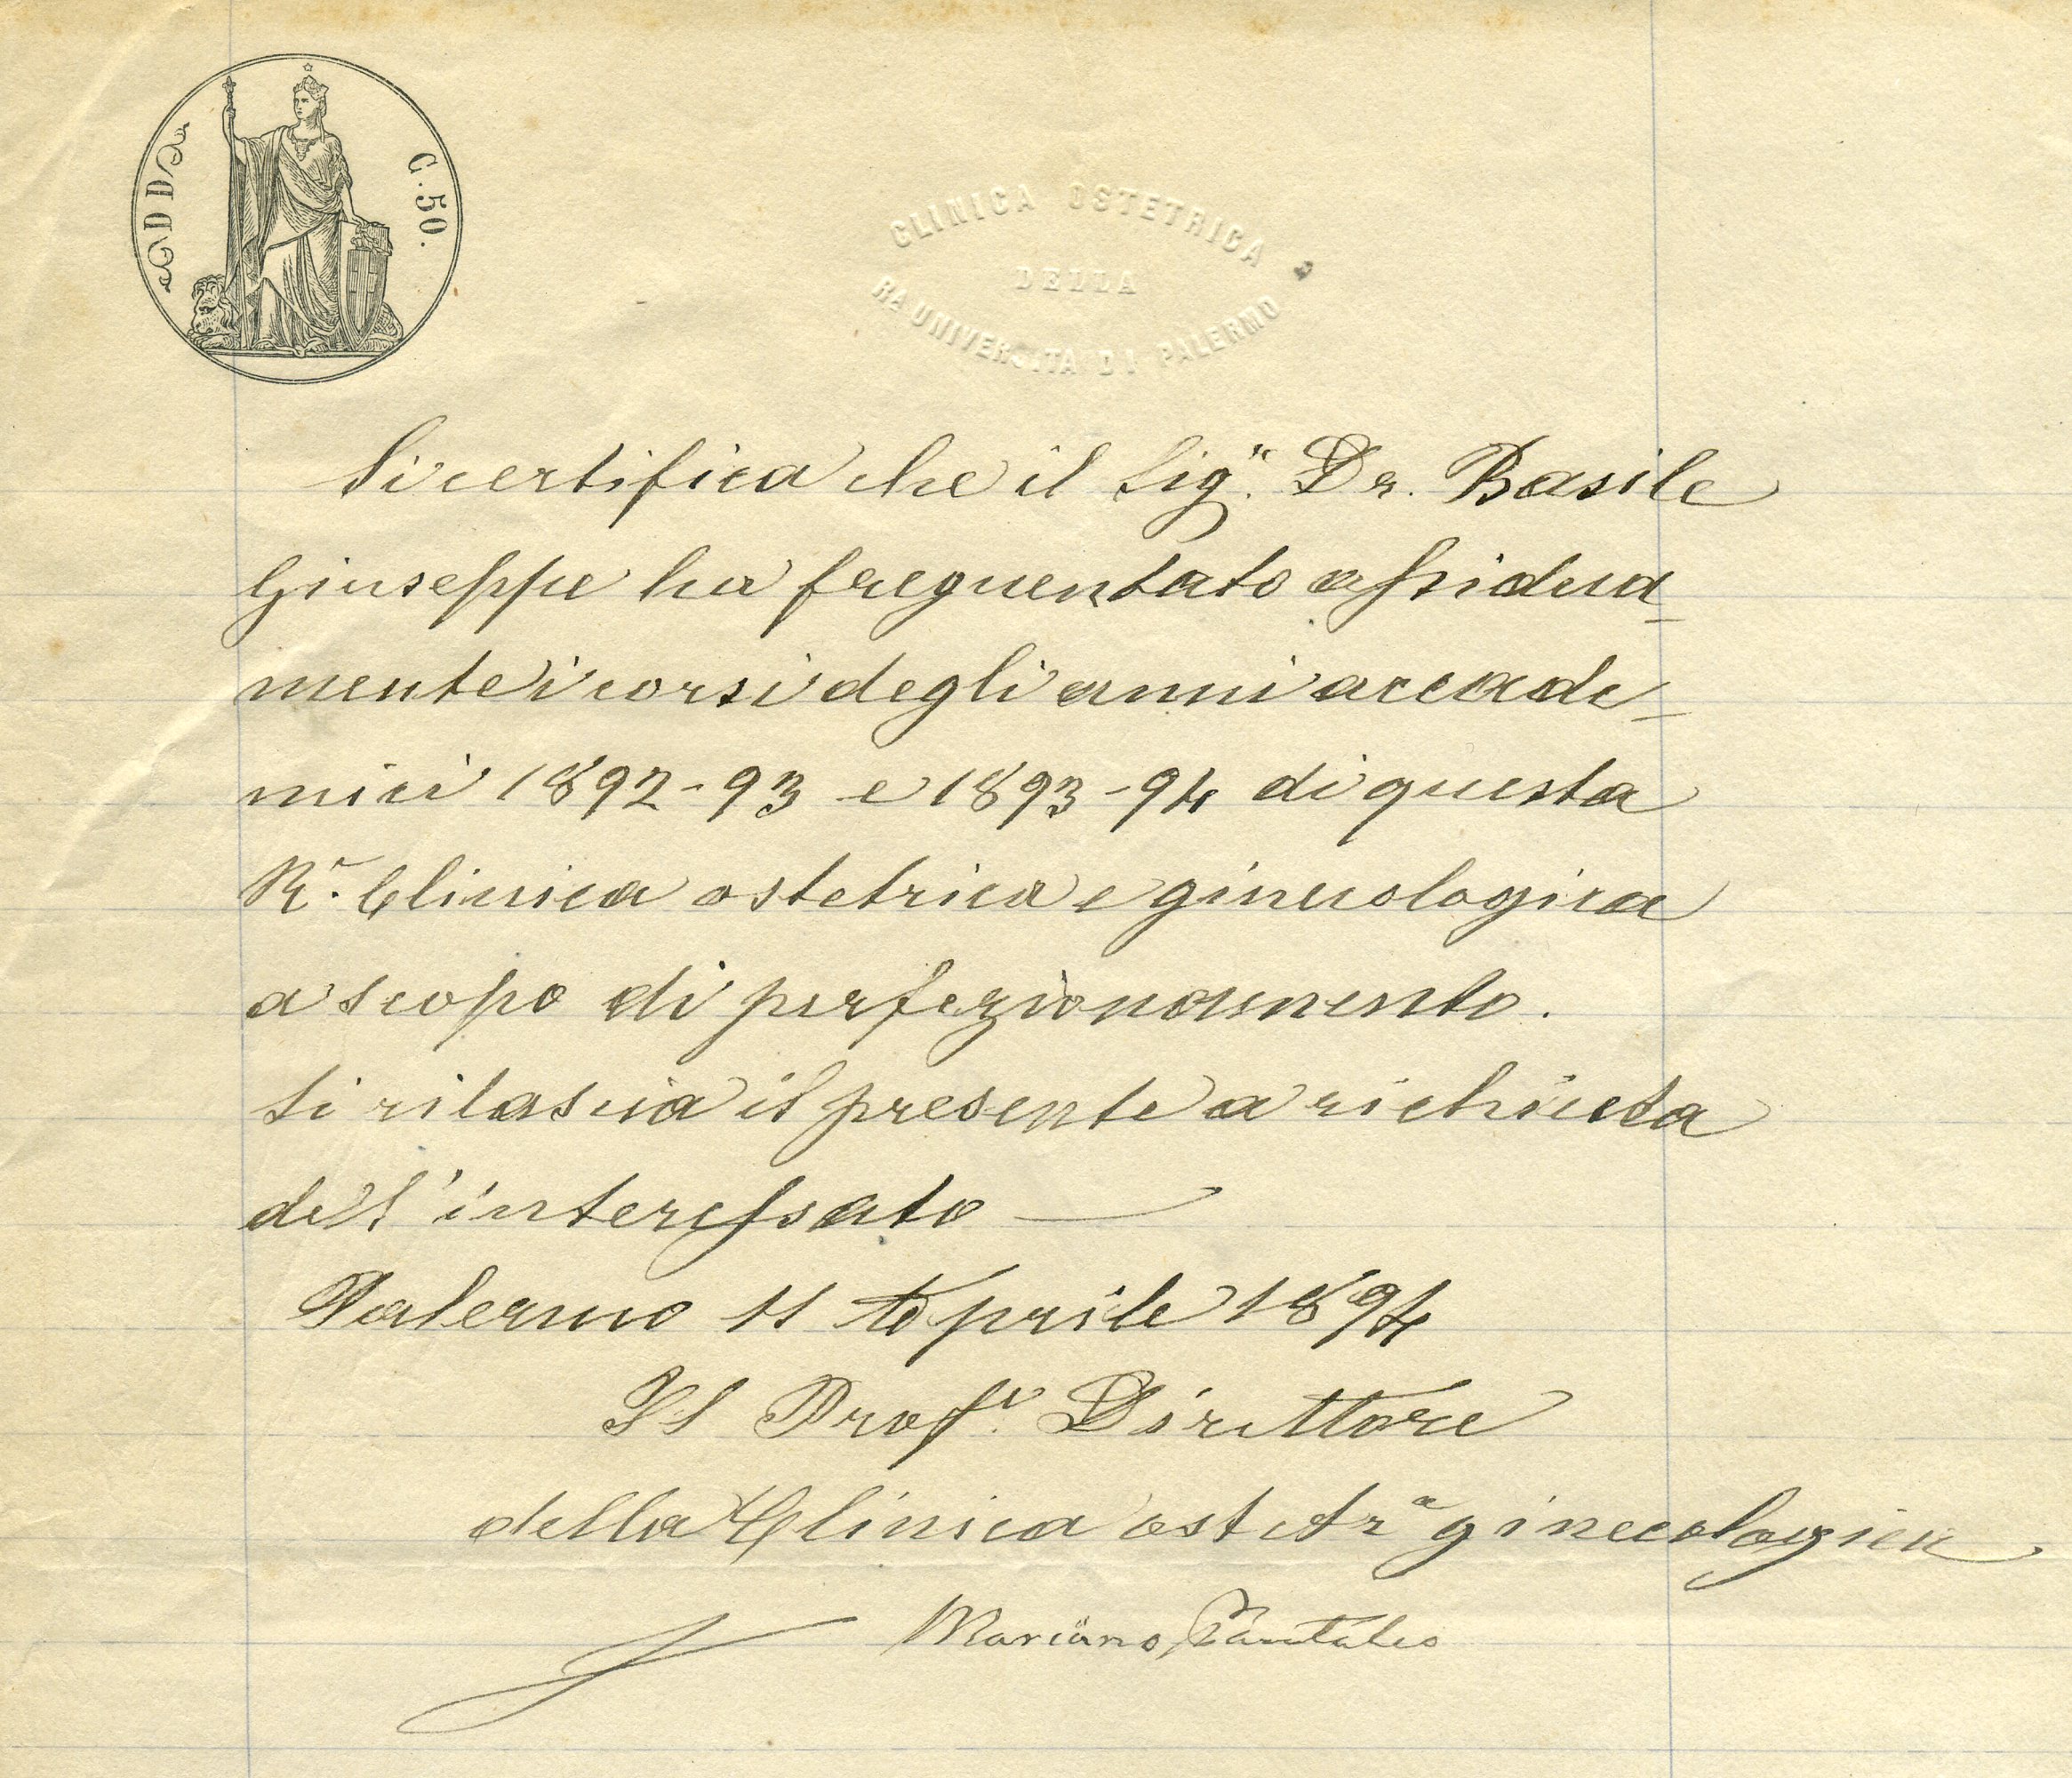 DD
C. 50.
CLINICA OSTETRICA
DELLA
RA UNIVERSITA DI PALERMO
Si certifica che il Sigr. Dr. Basile
Giuseppe ha frequentato assidua-
mente i corsi degli anni accade-
mici 1892-93 e 1893-94 di questa
Ra. Clinica ostetrica e ginecologica
a scopo di perfezionamento.
Si rilascia il presente a richiesta
dell'interessato —
Palermo 11 Aprile 1894
Il Profr. Direttore
della Clinica ostetra ginecologica
Mariano Pantaleo